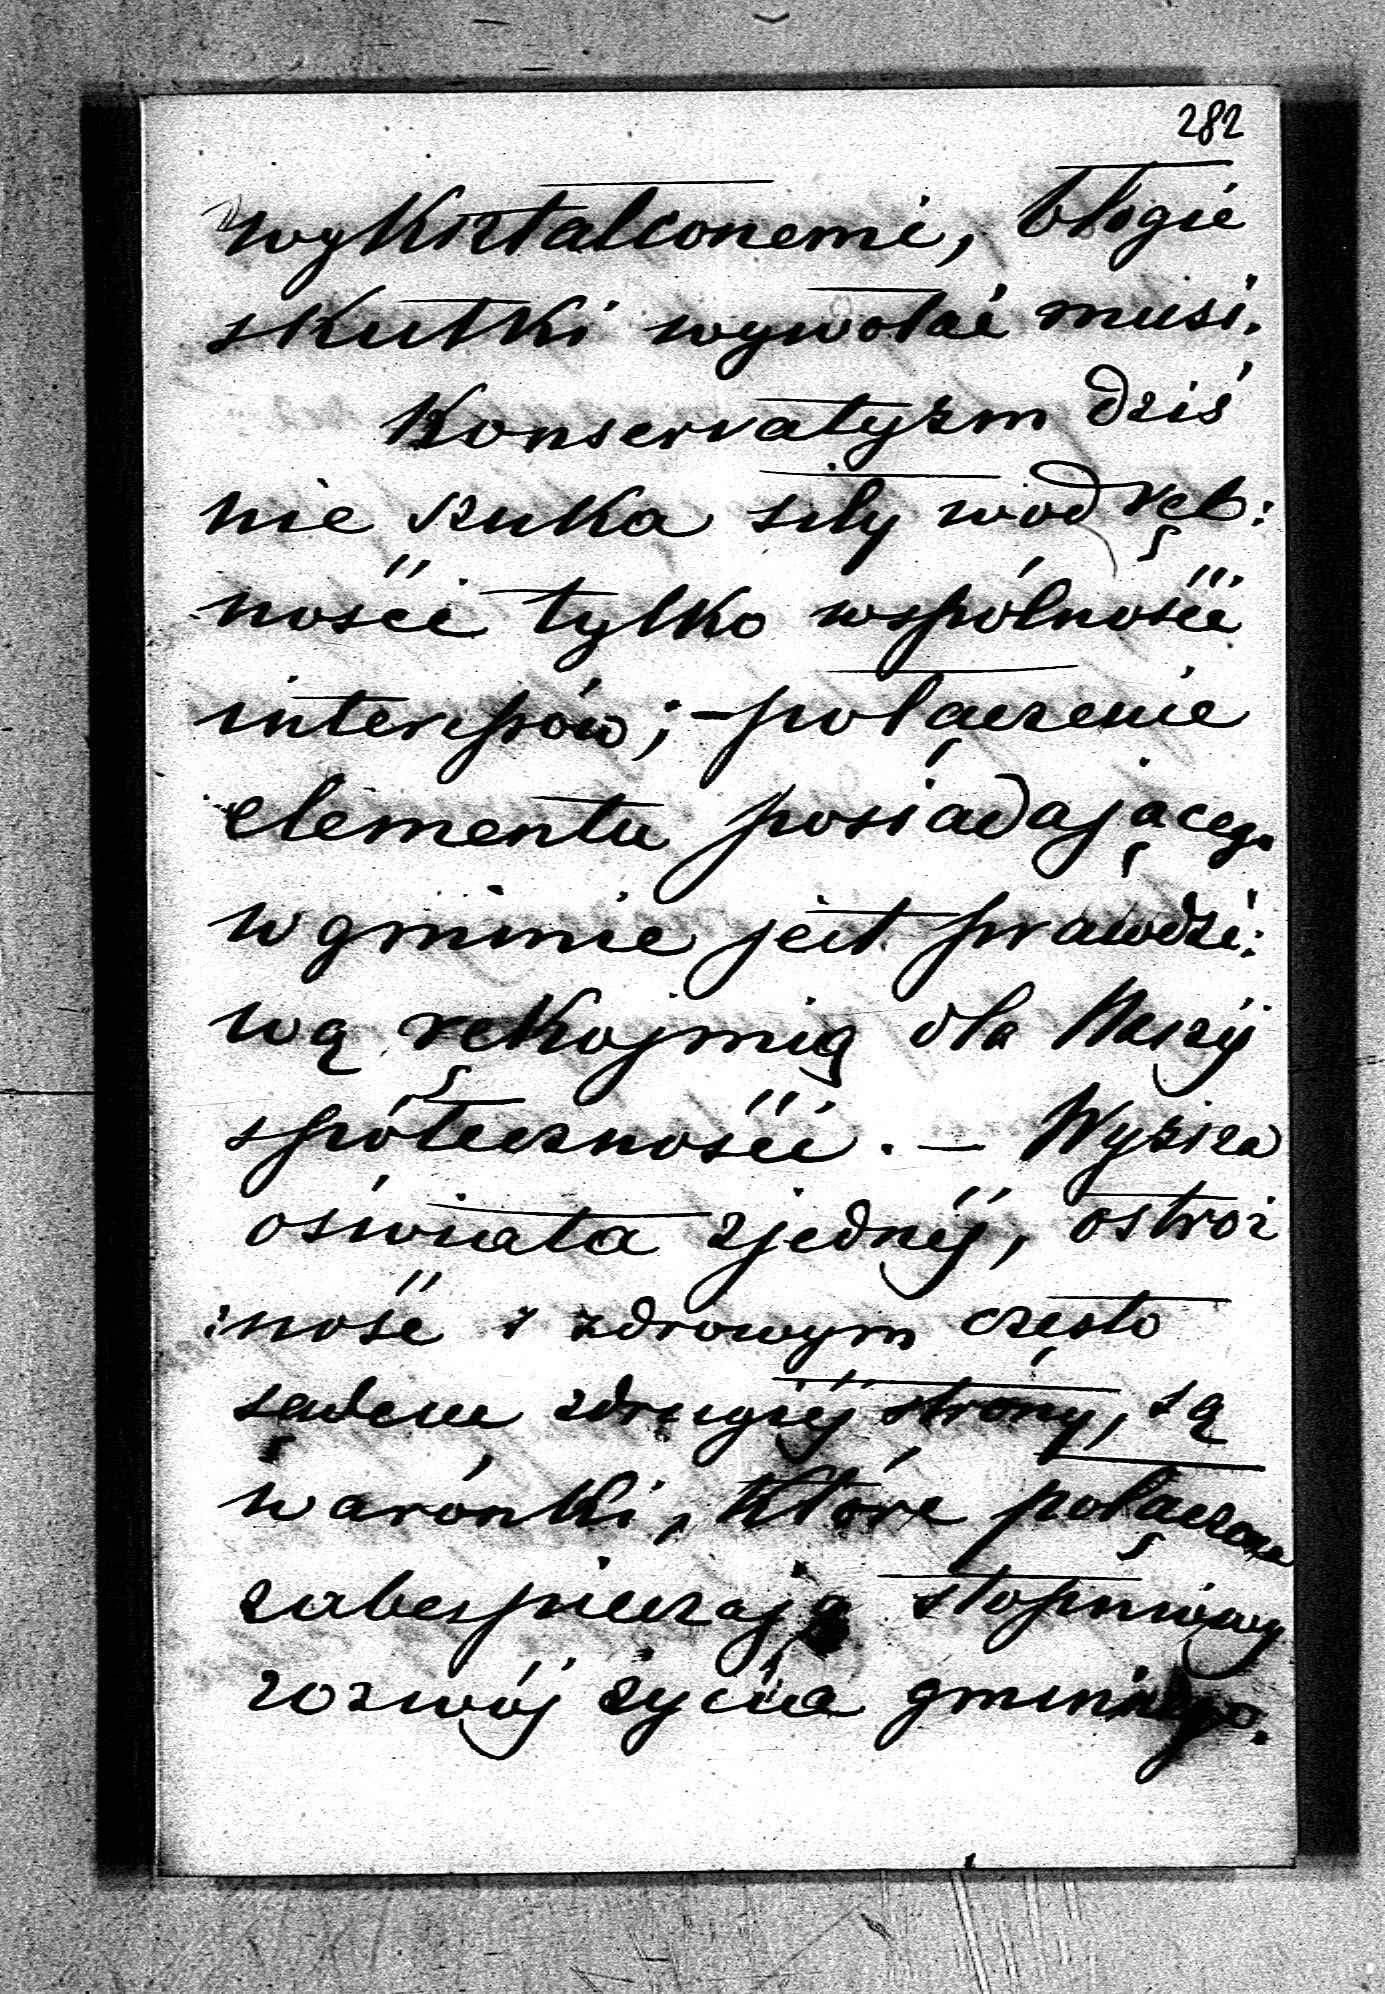 282
wykształconemi, błogie
skutki wywołać musi.
Konserwatyzm dziś
nie szuka siły w odręb:
ności tylko wspólności
interessów; – połączenie
elementu posiadającego
w gminie jest prawdzi:
wą rękojmią dla Naszéj
społeczności. – Wyższa
oświata z jednéj, ostroż
:ność z zdrowym często
sądem z drugiéj strony, są
warónki, które połączone
zabespieczają stopniowy
rozwój życia gminnego.